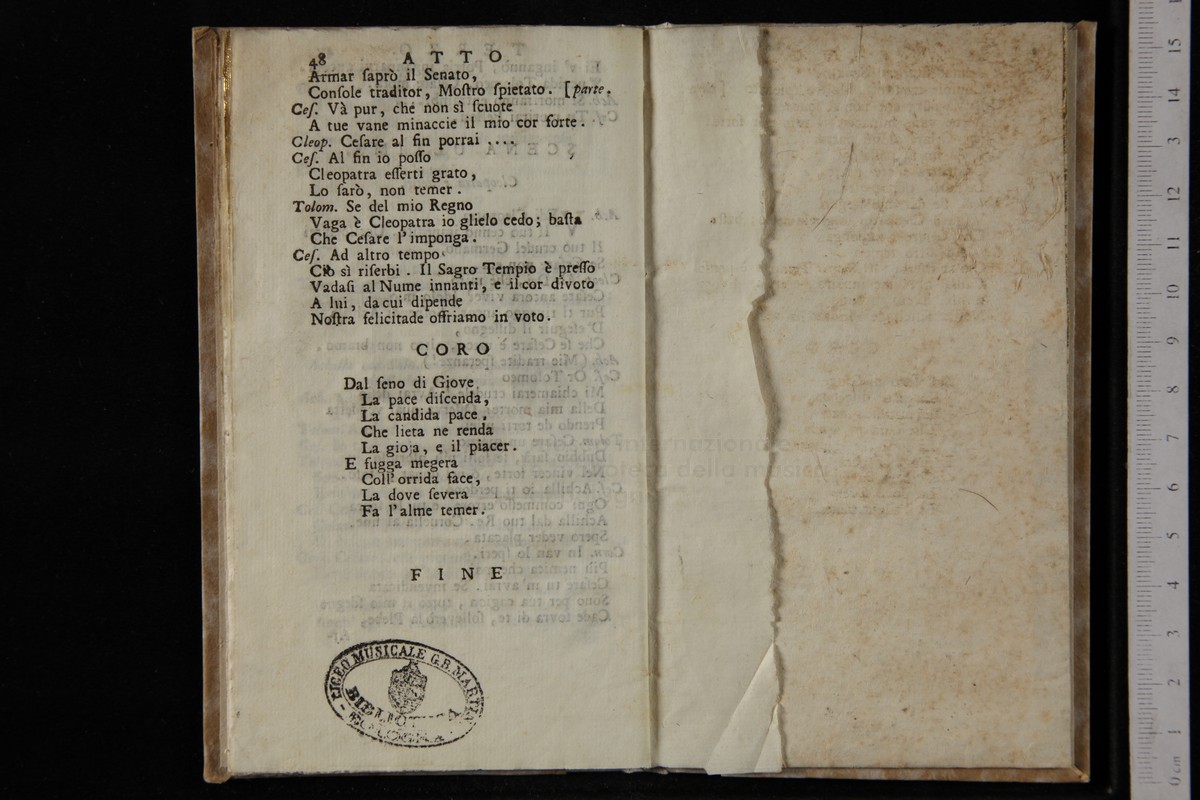 48 ATTO
Armar ſaprò il Senato,
Conſole traditor, Moſtro ſpietato. [parte.
Ceſ. Và pur, che non sì ſcuote
A tue vane minaccie il mio cor forte.
Cleop. Ceſare al fin porrai ....
Ceſ. Al fin io poſſo
Cleopatra eſſerti grato,
Lo farò, non temer.
Tolom. Se del mio Regno
Vaga è Cleopatra io glielo cedo; baſta
Che Ceſare l'imponga.
Ceſ. Ad altro tempo
Ciò sì riſerbi. Il Sagro Tempio è preſſo
Vadaſi al Nume innanti, e il cor divoto
A lui, da cui dipende
Noſtra felicitade offriamo in voto.
CORO
Dal ſeno di Giove
La pace diſcenda,
La candida pace,
Che lieta ne renda
La gioja, e il piacer.
E fugga megera
Coll' orrida face,
La dove ſevera
Fa l'alme temer.
FINE
LICEO MUSICALE G.B. MARTINI
BIBLIOTECA
BOLOGNA
internazionale
della musica
15
14
13
12
11
10
9
8
7
6
5
4
3
2
1
0 cm